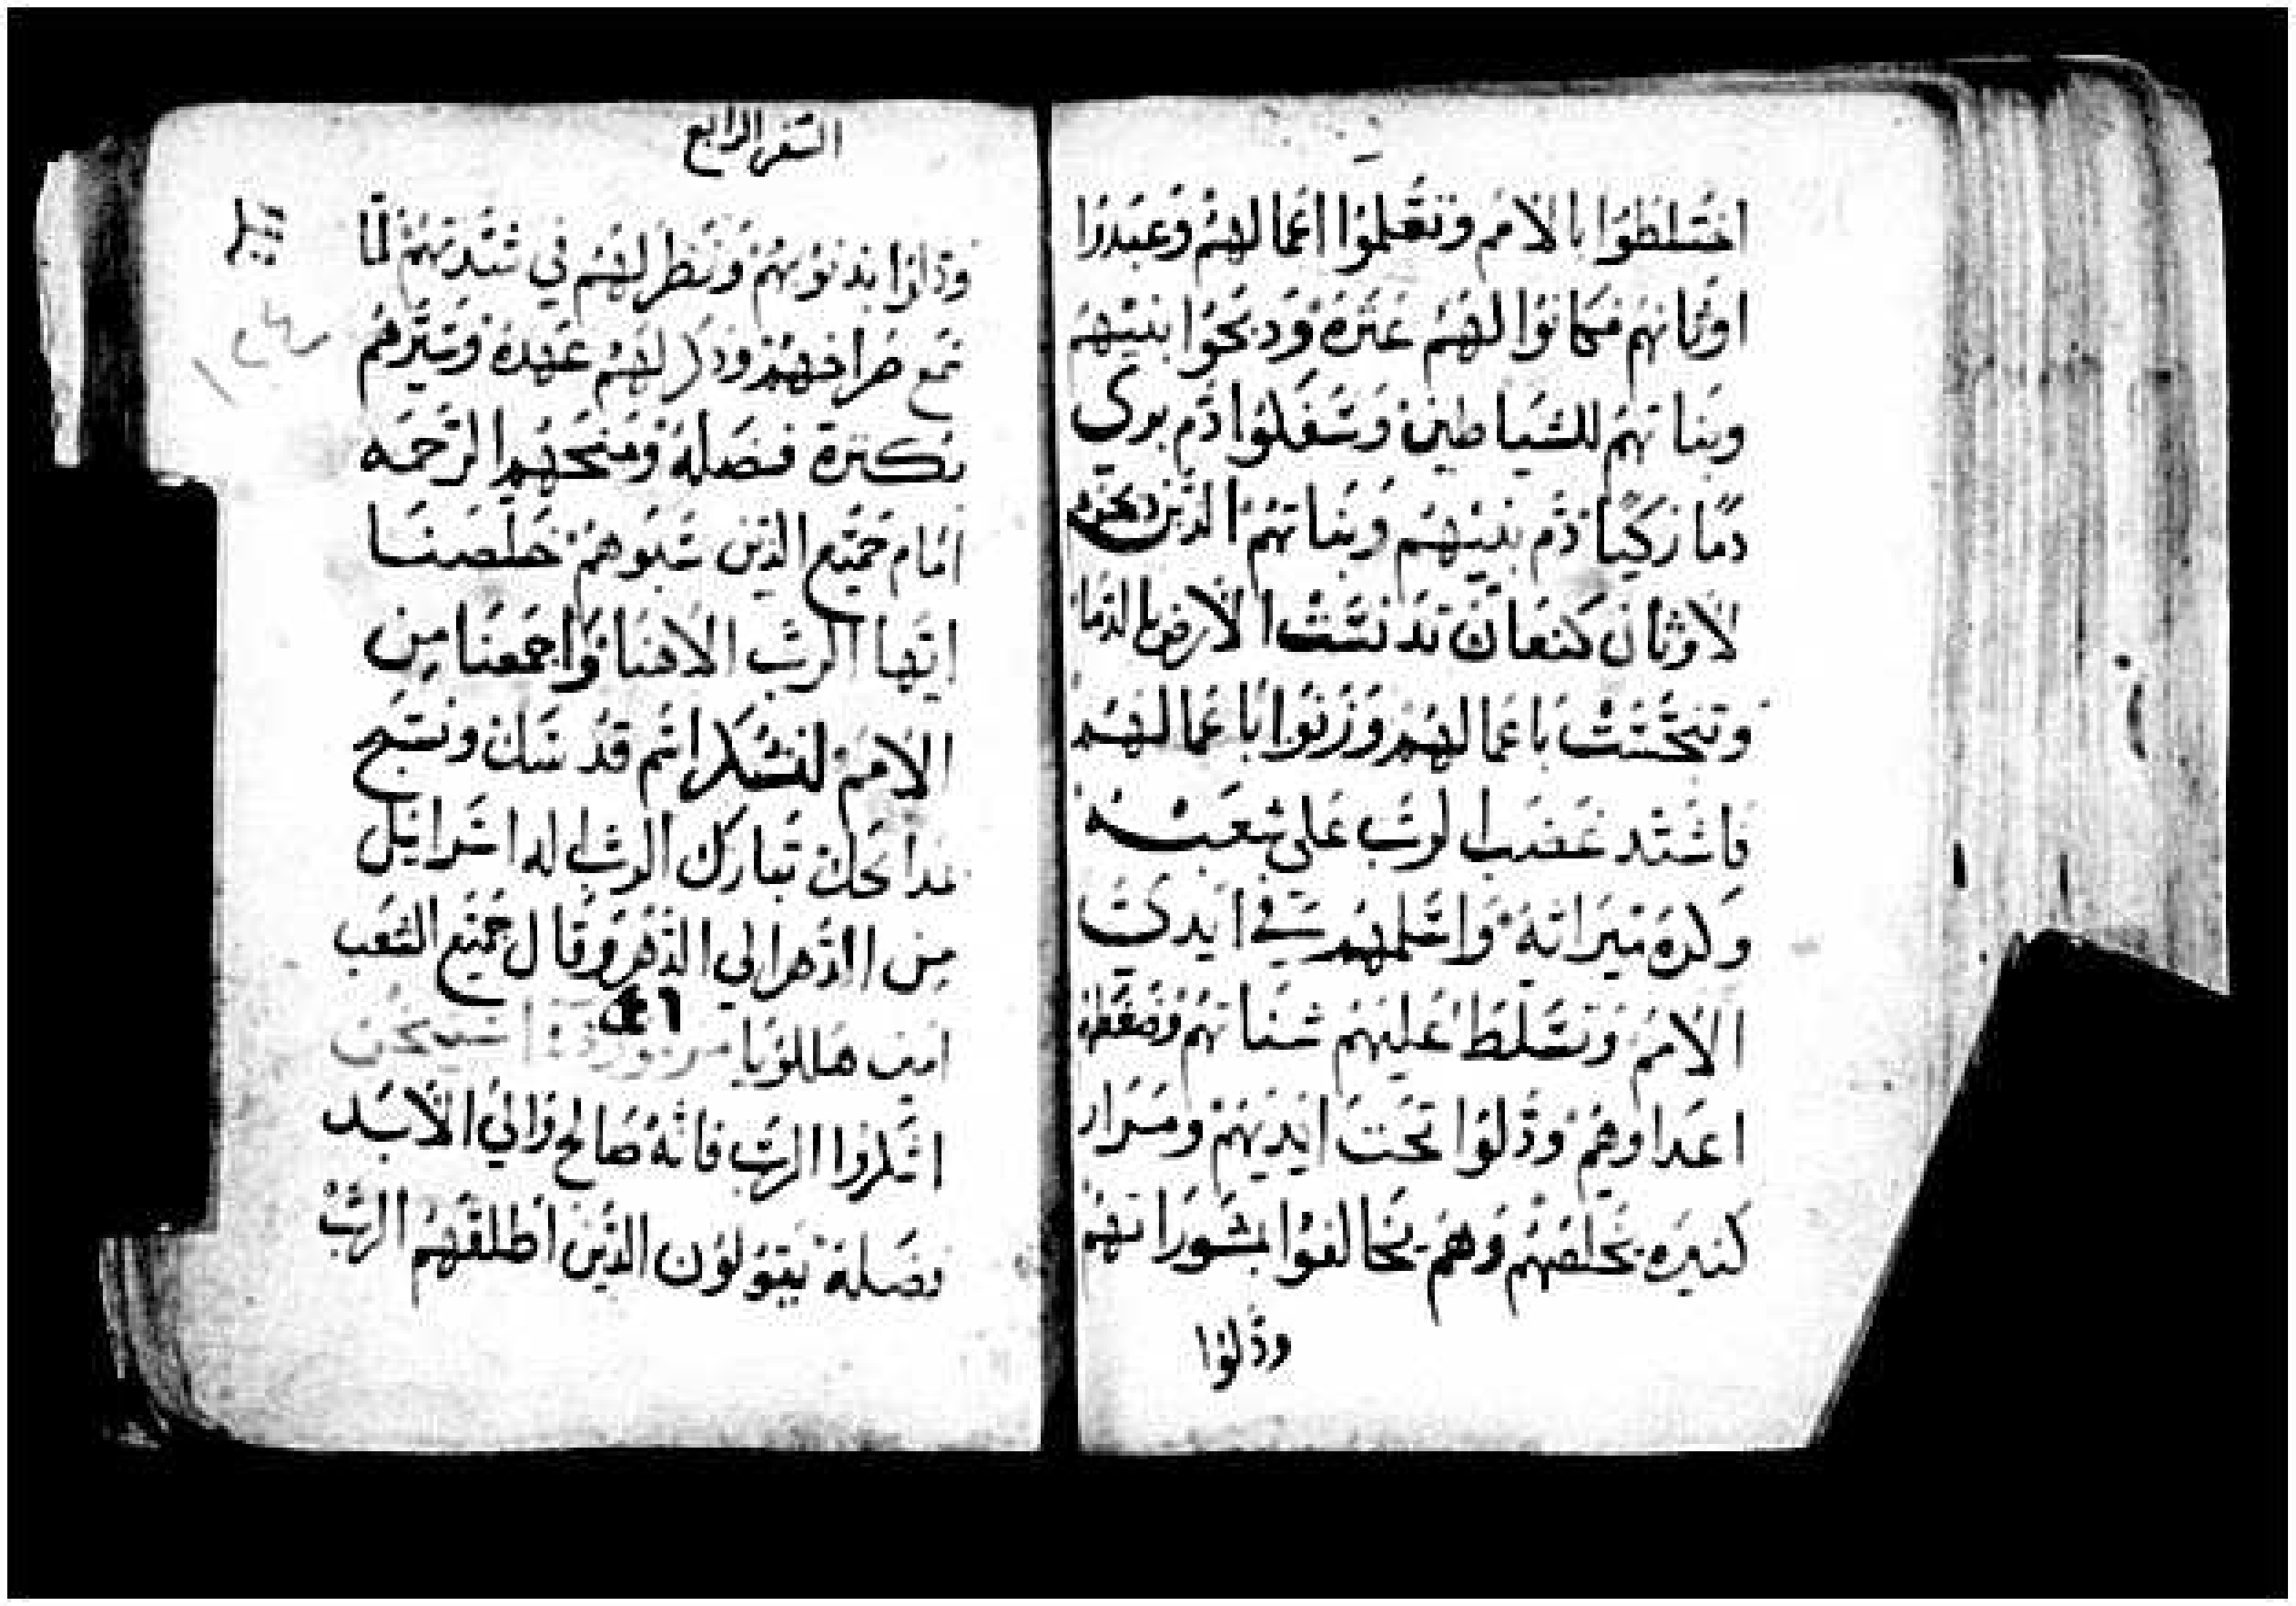 اختلطوا بالامم وتعلموا اعمالهم وعبدوا
اوثانهم فكانوا لهم عثرة وذبحوا بنيهم
وبناتهم للشياطين وسفكوا دم بري
دما زكيا دم بنيهم وبناتهم الذين ذبحوهم
لاوثان كنعان تدنست الارض بالدما
وتنجست باعمالهم وزنوا باعمالهم
فاشتد غضب الرب على شعبه
وكره ميراثه واسلمهم في ايدي
الامم وتسلط عليهم شناتهم وضغطهم
اعداوهم وذلوا تحت ايديهم ومرار
كثيره يخلصهم وهم يخالفوا بمشوراتهم
وذلوا
السفر الرابع
وذلوا بذنوبهم ونظر لهم في شدتهم لما
سمع صراخهم وذكر لهم عهده وسيرهم
بكثرة فضله ومنحهم الرحمه
امام جميع الذين سبوهم خلصنا
ايها الرب الاهنا واجمعنا من
الامم لنشكر اسم قدسك ونسبح
بمدايحك تبارك الرب اله اسرايل
من الدهر الى الدهر وقال جميع الشعب
امين هللويا مزمور
اشكروا الرب فانه صالح والي الابد
فضله يقولون الذين اطلقهم الرب